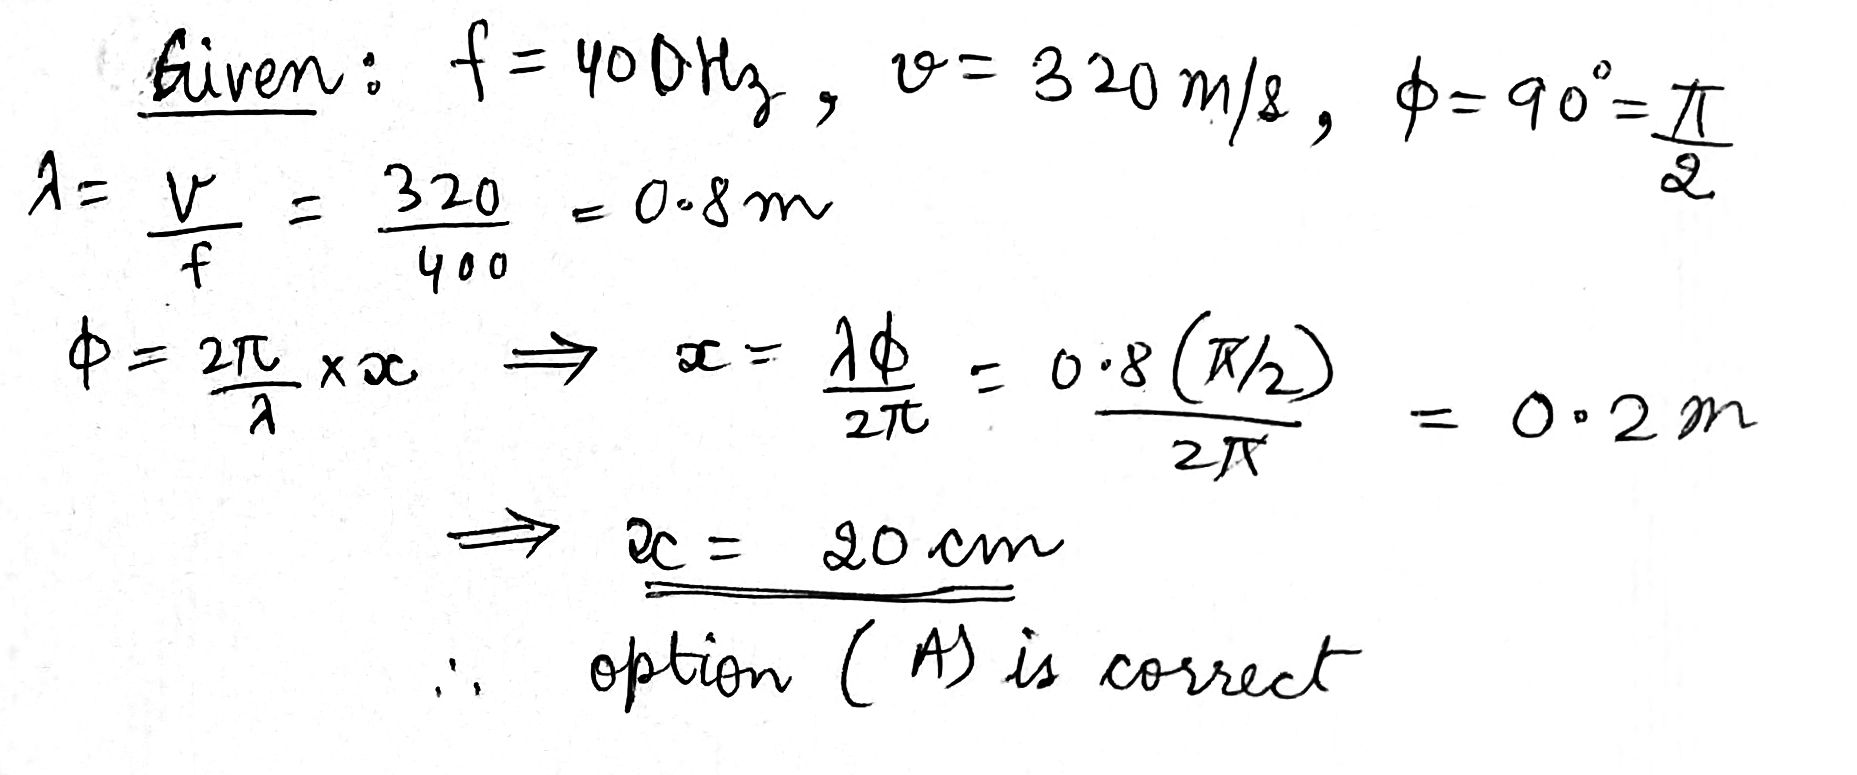 Given: f = 400Hz, v = 320 m/s, ϕ = 90° = π/2
λ = v/f = 320/400 = 0.8 m
ϕ = 2π/λ × x ⟹ x = λϕ/2π = 0.8(π/2)/2π = 0.2 m
⟹ x = 20 cm
∴ option (A) is correct